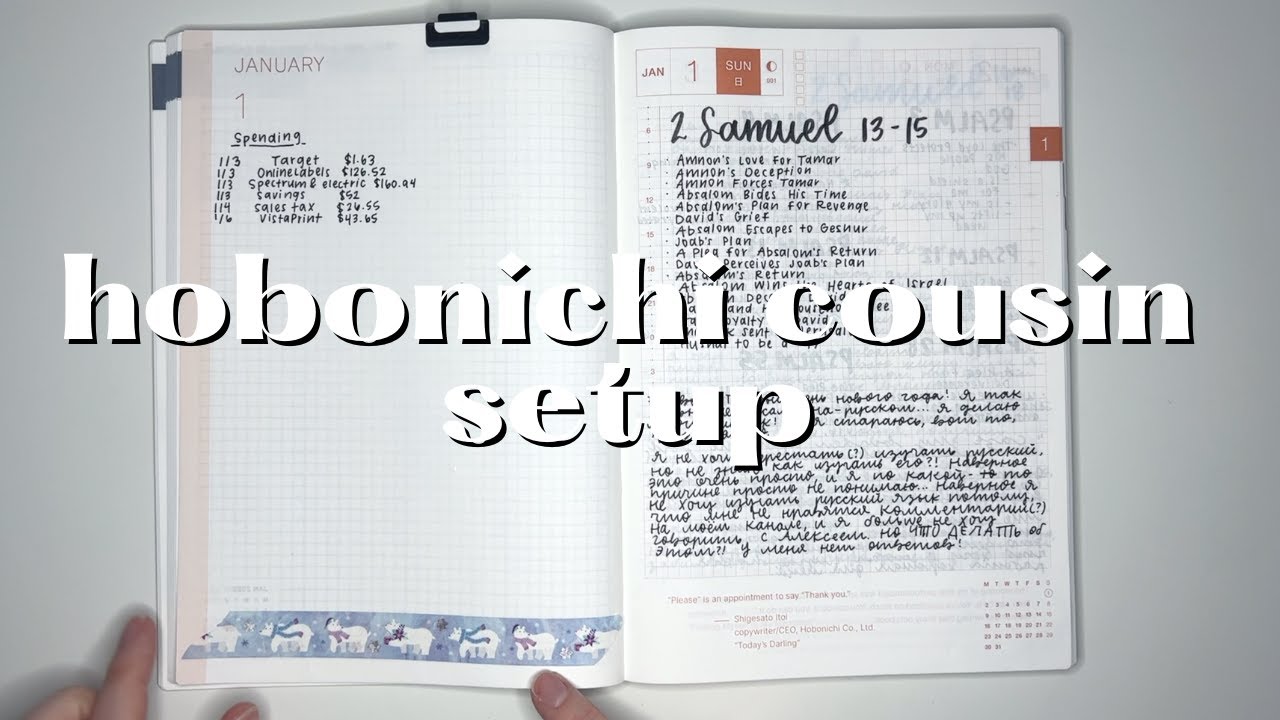 JANUARY
1
Spending
1/3 Target $1.63
1/3 OnlineLabels $126.52
1/3 Spectrum & electric $160.94
1/3 Savings $52
1/4 Sales tax $26.55
1/6 VistaPrint $43.65
JAN 1 SUN
日
001
2 Samuel 13-15
1
· Amnon's Love For Tamar
· Amnon's Deception
· Amnon Forces Tamar
· Absalom Bides His Time
· Absalom's Plan For Revenge
· David's Grief
· Absalom Escapes to Geshur
· Joab's Plan
· A Plea for Absalom's Return
Perceives Joab's Plan
Absalom's Return
Wins Hearts of Israel
David
sent
to be a
hobonichi cousin
setup
нового года! я так
на-русском... я делаю
я стараюсь, вот то,
Я не хочу перестать(?) изучать русский,
но не знаю как изучать его?! Наверное
это очень просто и я по какой-то
причине просто не понимаю... Наверное я
не хочу изучать русский язык потому,
что мне не нравятся комментарий(?)
на моём канале, и я больше не хочу
говорить с Алексеем. но ЧТО ДЕЛАТЬ об
этом?! у меня нет ответов!
"Please" is an appointment to say "Thank you."
Shigesato Itoi
copywriter/CEO, Hobonichi Co., Ltd.
"Today's Darling"
M T W T F S S
1
2 3 4 5 6 7 8
9 10 11 12 13 14 15
16 17 18 19 20 21 22
23 24 25 26 27 28 29
30 31